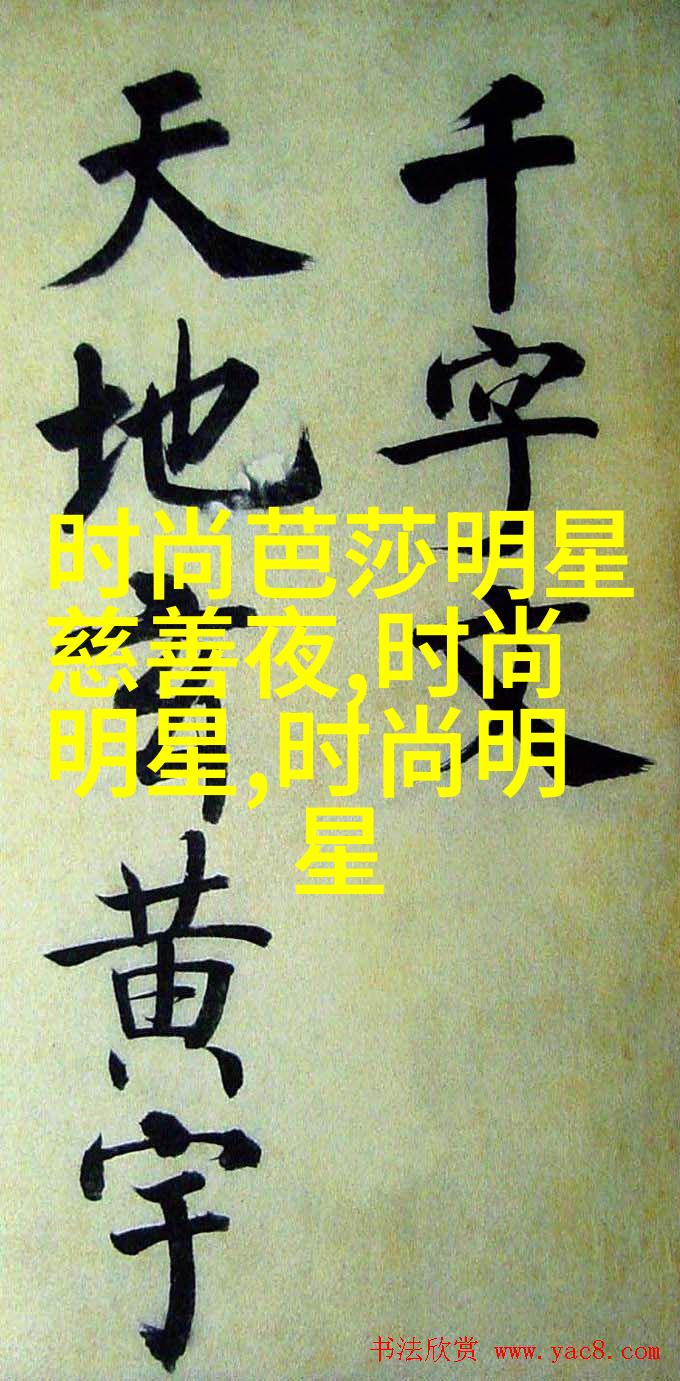 千字文
天地玄黄宇
时尚芭莎明星
慈善夜,时尚
明星,时尚明
星
书法欣赏 www.yac8.com